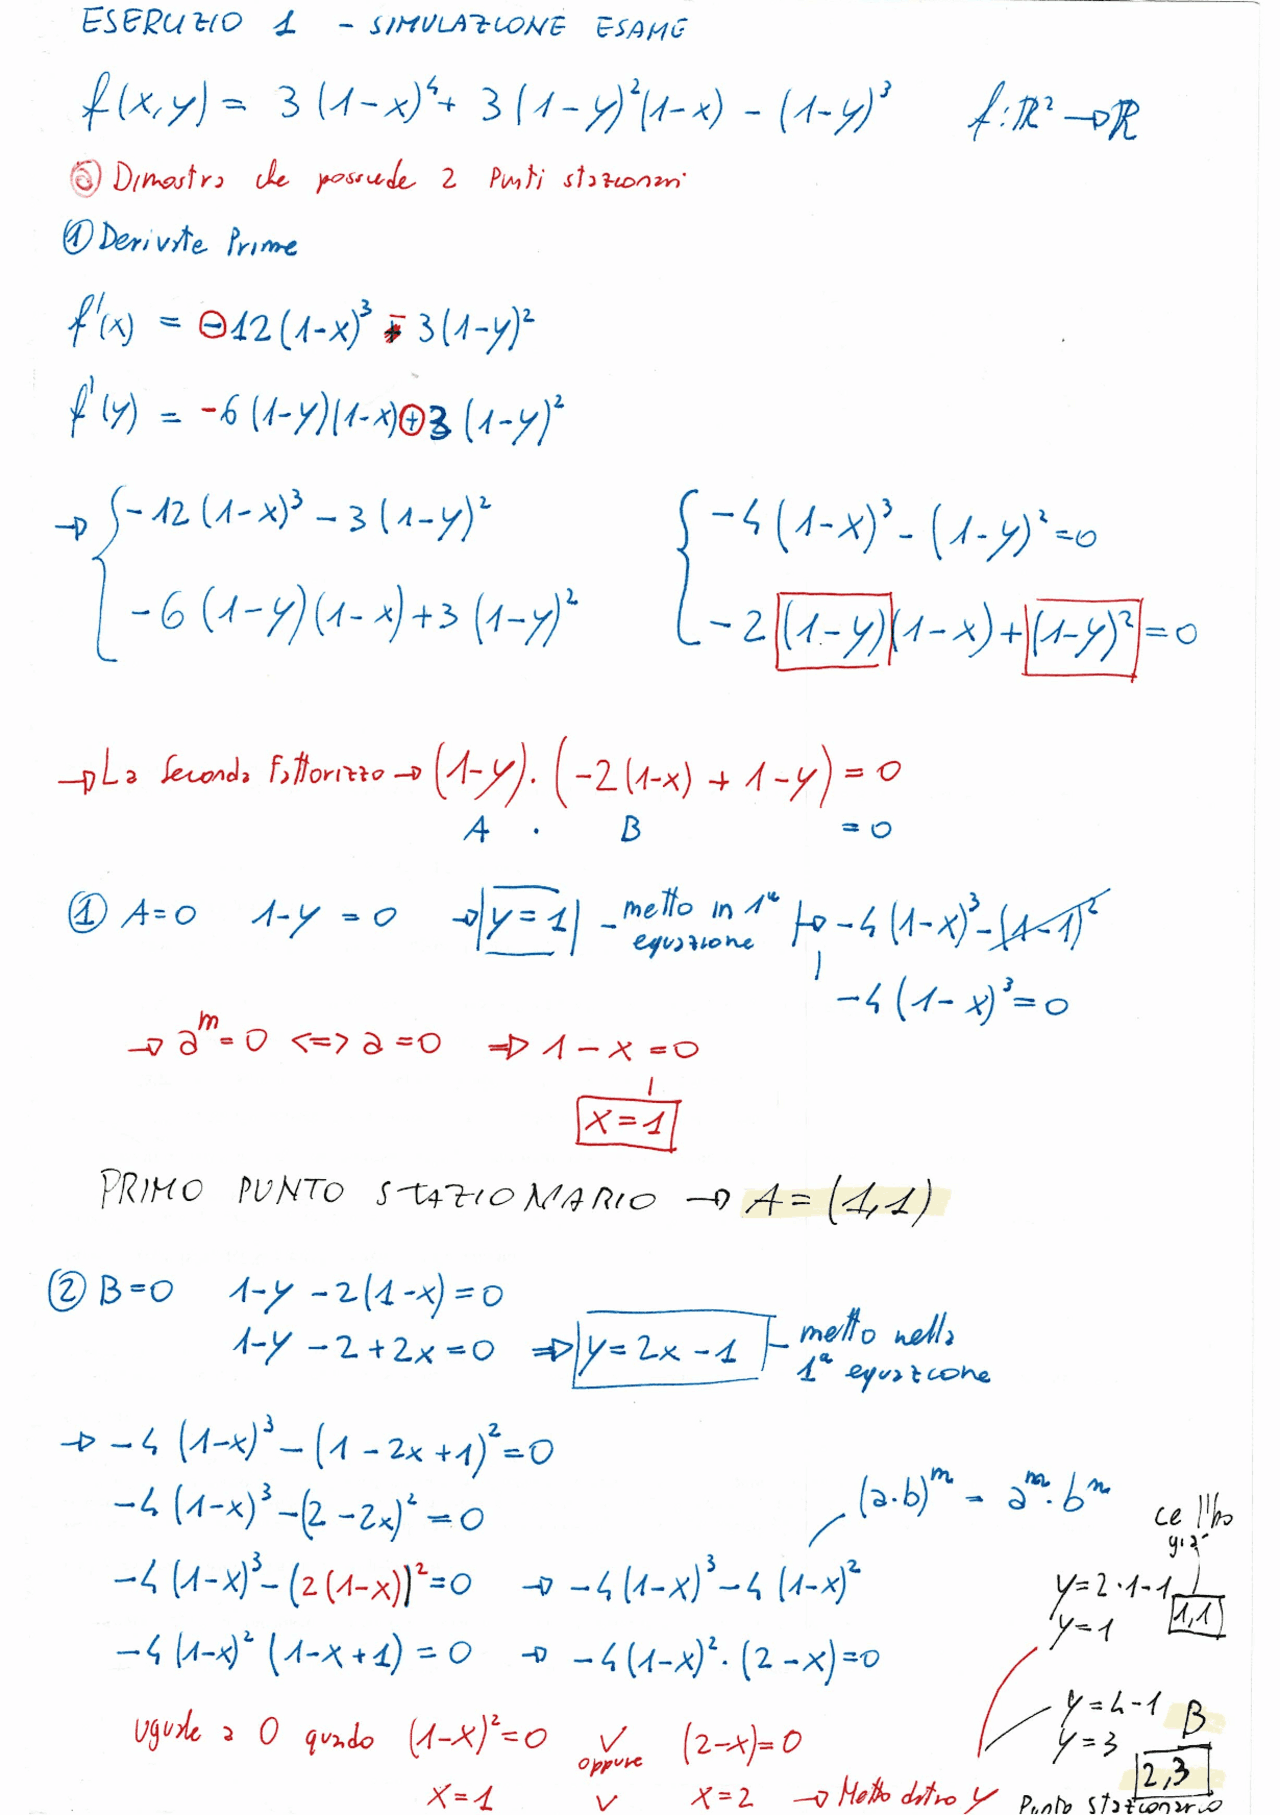 ESERCIZIO 1 - SIMULAZIONE ESAME
f(x,y) = 3(1-x)⁴ + 3(1-y)²(1-x) - (1-y)³ f: ℝ² → ℝ
⓪ Dimostra che possiede 2 Punti stazionari
① Derivate Prime
f'(x) = -12(1-x)³ - 3(1-y)²
f'(y) = -6(1-y)(1-x) + 3(1-y)²
→ { -12(1-x)³ - 3(1-y)² { -4(1-x)³ - (1-y)² = 0
-6(1-y)(1-x) + 3(1-y)² -2(1-y)(1-x) + (1-y)² = 0
→ La Seconda Fattorizzo → (1-y)·(-2(1-x) + 1-y) = 0
A · B = 0
① A=0 1-y = 0 → |y=1| - metto in 1ª equazione → -4(1-x)³ - (1-1)²
-4(1-x)³ = 0
→ aᵐ = 0 <=> a = 0 ⇒ 1-x = 0
x = 1
PRIMO PUNTO STAZIONARIO → A = (1,1)
② B=0 1-y-2(1-x) = 0
1-y-2+2x = 0 ⇒ y = 2x-1 - metto nella 1ª equazione
→ -4(1-x)³ - (1-2x+1)² = 0
-4(1-x)³ - (2-2x)² = 0
(a·b)ᵐ = aᵐ·bᵐ
-4(1-x)³ - (2(1-x))² = 0 → -4(1-x)³ - 4(1-x)²
-4(1-x)² (1-x+1) = 0 → -4(1-x)²·(2-x) = 0
ce l'ho già
y = 2·1-1
y = 1 1,1
uguale a 0 quando (1-x)² = 0 ∨ oppure (2-x) = 0
x = 1 ∨ x = 2 → Metto dentro y
y = 4-1 B
y = 3 2,3
Punto stazionario